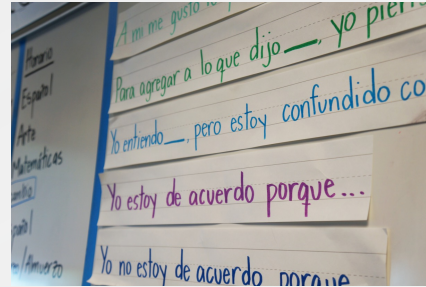 Horario
Español
Arte
Matemáticas
A mi me gustó
Para agregar a lo que dijo___, yo
Yo entiendo___, pero estoy confundido
Yo estoy de acuerdo porque...
Yo no estoy de acuerdo porque